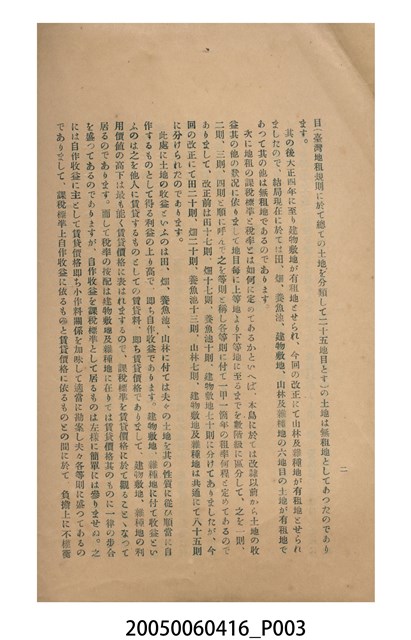 目(臺灣地租規則に於て總ての土地を分類して二十五地目とす)の土地は無租地としてあつたのであり
ます。
其の後大正四年に至り建物敷地が有租地とせられ、今回の改正にて山林及雜種地が有租地とせられ
ましたので、結局現在に於ては田、畑、養魚池、建物敷地、山林及雜種地の六地目の土地が有租地で
あつて其の他は無租地であるのであります。
次に地租の課稅標準と稅率とは如何に定めてあるかといへば、本島に於ては改隷以前から土地の收
益其の他の狀況に依りまして地目每に上等地より下等地に至るまでを數階級に區分して、之を一則、
二則、三則、四則と順に呼んで之を等則と稱し各等則に付て一甲一箇年の租率何程と定めてあるので
ありまして、改正前は田十七則、畑十七則、養魚池十則、建物敷地七十則に分けてありましたが、今
回の改正にて田二十則、畑二十則、養魚池十三則、山林七則、建物敷地及雜種地は共通にて八十五則
に分けられたのであります。
此處に土地の收益といふのは田、畑、養魚池、山林に付ては夫々の土地を其の性質に從ひ順當に自
作するものとして得る利益の上り高で、卽ち自作收益であります。建物敷地、雜種地に付て收益とい
ふのは之を他人に賃貸するものとしての賃貸料、卽ち賃貸價格であります。建物敷地、雜種地の利
用價値の高下は最も能く賃貸價格に表はれますので、課稅標準を賃貸價格に於て觀ることゝなつて
居るのであります。而して稅率の按配は建物敷地及雜種地に在りては賃貸價格其のものに一律の步合
を盛つてあるのでありますが、自作收益を課稅標準として居るものは左樣に簡單には參りませぬ。之
には自作收益に主として賃貸價格卽ち小作料關係を加味して適當に勘案し夫々各等則に盛つてあるの
でありまして、課稅標準上自作收益に依るものと賃貸價格に依るものとの間に於て 負擔上に不權衡
二
20050060416_P003